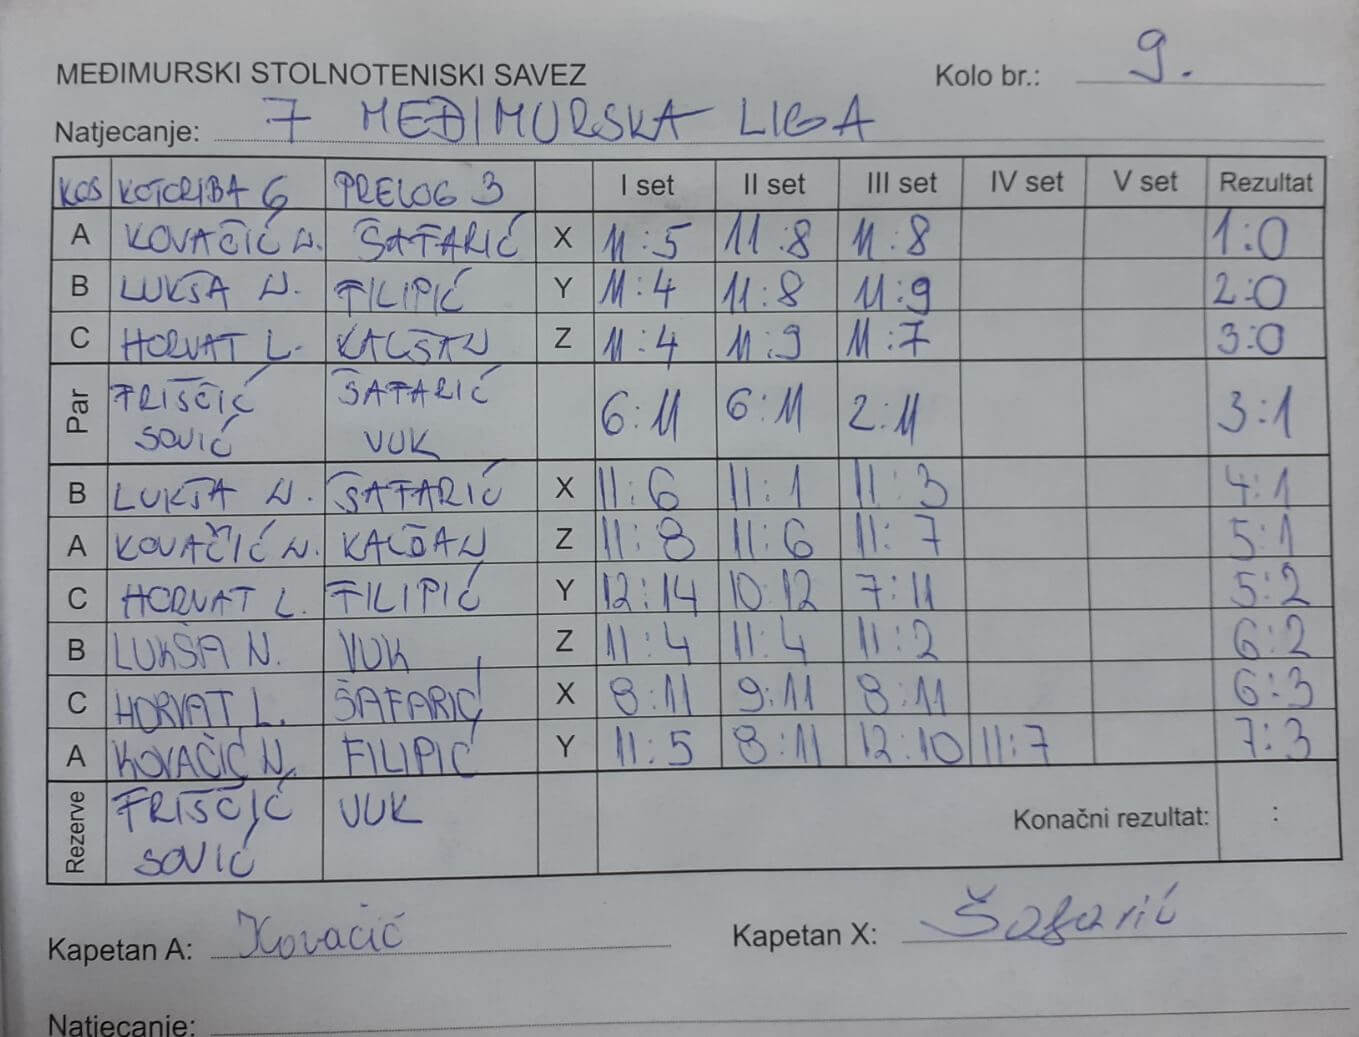 MEĐIMURSKI STOLNOTENISKI SAVEZ Kolo br.: 9.
Natjecanje: 7 MEĐIMURSKA LIGA
KOTORIBA 6 PRELOG 3 I set II set III set IV set V set Rezultat
A KOVAČIĆ N. ŠAFARIĆ X 11:5 11:8 11:8 1:0
B LUKŠA N. FILIPIĆ Y 11:4 11:8 11:9 2:0
C HORVAT L. KALŠAN Z 11:4 11:9 11:7 3:0
Par FRIŠČIĆ SOVIĆ ŠAFARIĆ VUK 6:11 6:11 2:11 3:1
B LUKŠA N. ŠAFARIĆ X 11:6 11:1 11:3 4:1
A KOVAČIĆ N. KALŠAN Z 11:8 11:6 11:7 5:1
C HORVAT L. FILIPIĆ Y 12:14 10:12 7:11 5:2
B LUKŠA N. VUK Z 11:4 11:4 11:2 6:2
C HORVAT L. ŠAFARIĆ X 8:11 9:11 8:11 6:3
A KOVAČIĆ N. FILIPIĆ Y 11:5 8:11 12:10 11:7 7:3
Rezerve FRIŠČIĆ SOVIĆ VUK Konačni rezultat: :
Kapetan A: Kovačić Kapetan X: Šafarić
Natjecanje: